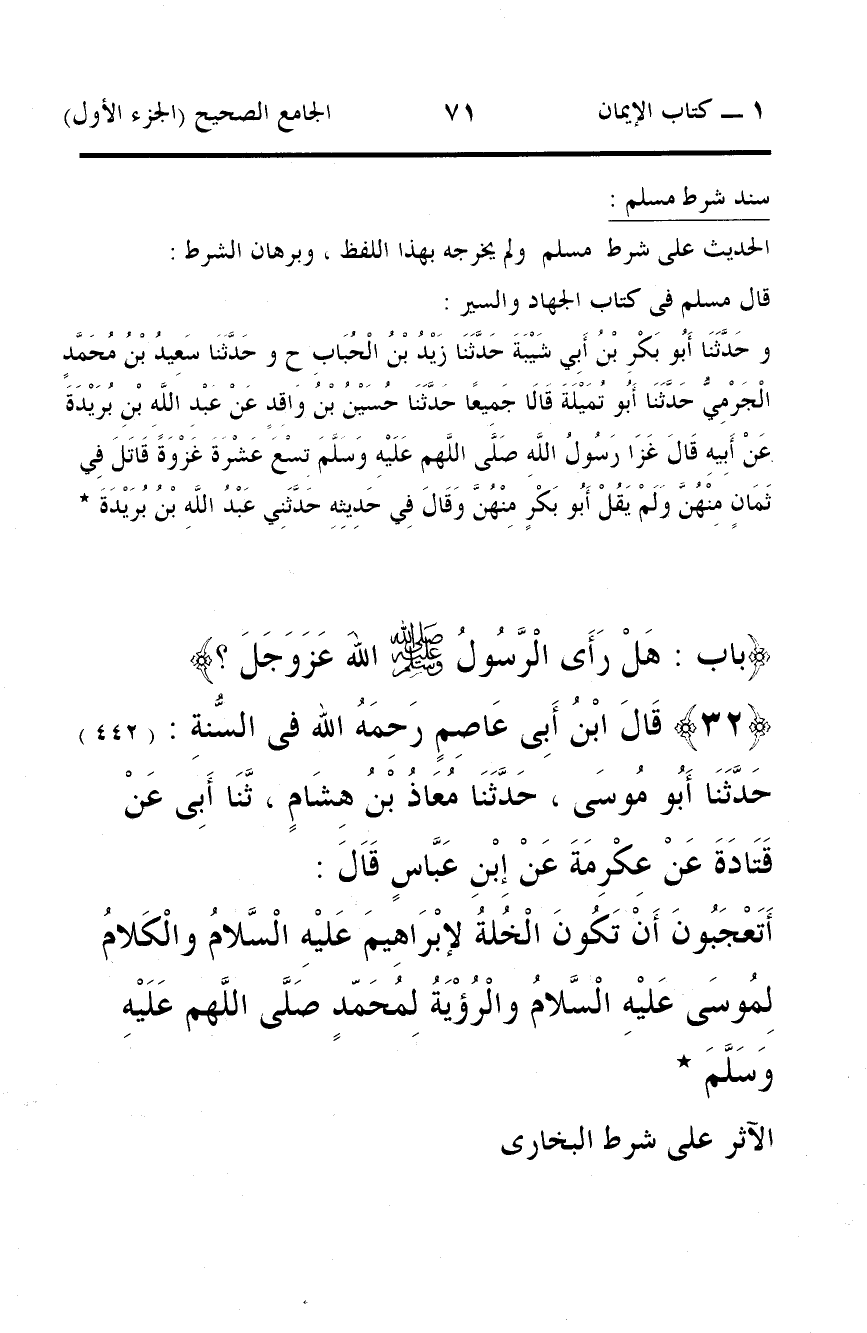 ١ ــ كتاب الإيمان ٧١ الجامع الصحيح (الجزء الأول)
سند شرط مسلم :
الحديث على شرط مسلم ولم يخرجه بهذا اللفظ ، وبرهان الشرط :
قال مسلم فى كتاب الجهاد والسير :
و حَدَّثَنَا أَبُو بَكْرِ بْنُ أَبِي شَيْبَةَ حَدَّثَنَا زَيْدُ بْنُ الْحُبَابِ ح و حَدَّثَنَا سَعِيدُ بْنُ مُحَمَّدٍ
الْجَرْمِيُّ حَدَّثَنَا أَبُو تُمَيْلَةَ قَالَا جَمِيعًا حَدَّثَنَا حُسَيْنُ بْنُ وَاقِدٍ عَنْ عَبْدِ اللَّهِ بْنِ بُرَيْدَةَ
عَنْ أَبِيهِ قَالَ غَزَا رَسُولُ اللَّهِ صَلَّى اللهم عَلَيْهِ وَسَلَّمَ تِسْعَ عَشْرَةَ غَزْوَةً قَاتَلَ فِي
ثَمَانٍ مِنْهُنَّ وَلَمْ يَقُلْ أَبُو بَكْرٍ مِنْهُنَّ وَقَالَ فِي حَدِيثِهِ حَدَّثَنِي عَبْدُ اللَّهِ بْنُ بُرَيْدَةَ *
﴿باب : هَلْ رَأَى الْرَّسُولُ ﷺ اللهَ عَزَوَجَلَ ؟﴾
﴿٣٢﴾ قَالَ ابْنُ أَبِى عَاصِمٍ رَحِمَهُ اللهُ فِى السُّنةِ : ( ٤٤٢ )
حَدَّثَنَا أَبُو مُوسَى ، حَدَّثَنَا مُعَاذُ بْنُ هِشَامٍ ، ثَّنَا أَبِى عَنْ
قَتَادَةَ عَنْ عِكْرِمَةَ عَنْ إِبْنِ عَبَّاسٍ قَالَ :
أَتَعْجَبُونَ أَنْ تَكُونَ الْخُلةُ لإِبْرَاهِيمَ عَلَيْهِ الْسَّلامُ والْكَلامُ
لِمُوسَى عَلَيْهِ الْسَّلامُ والْرُؤْيَةُ لِمُحَمّدٍ صَلَّى اللهم عَلَيْهِ
وَسَلَّمَ *
الآثر على شرط البخارى